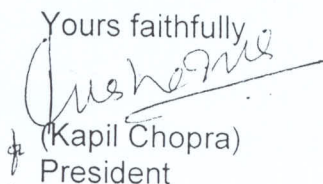 Yours faithfully
(Kapil Chopra)
President